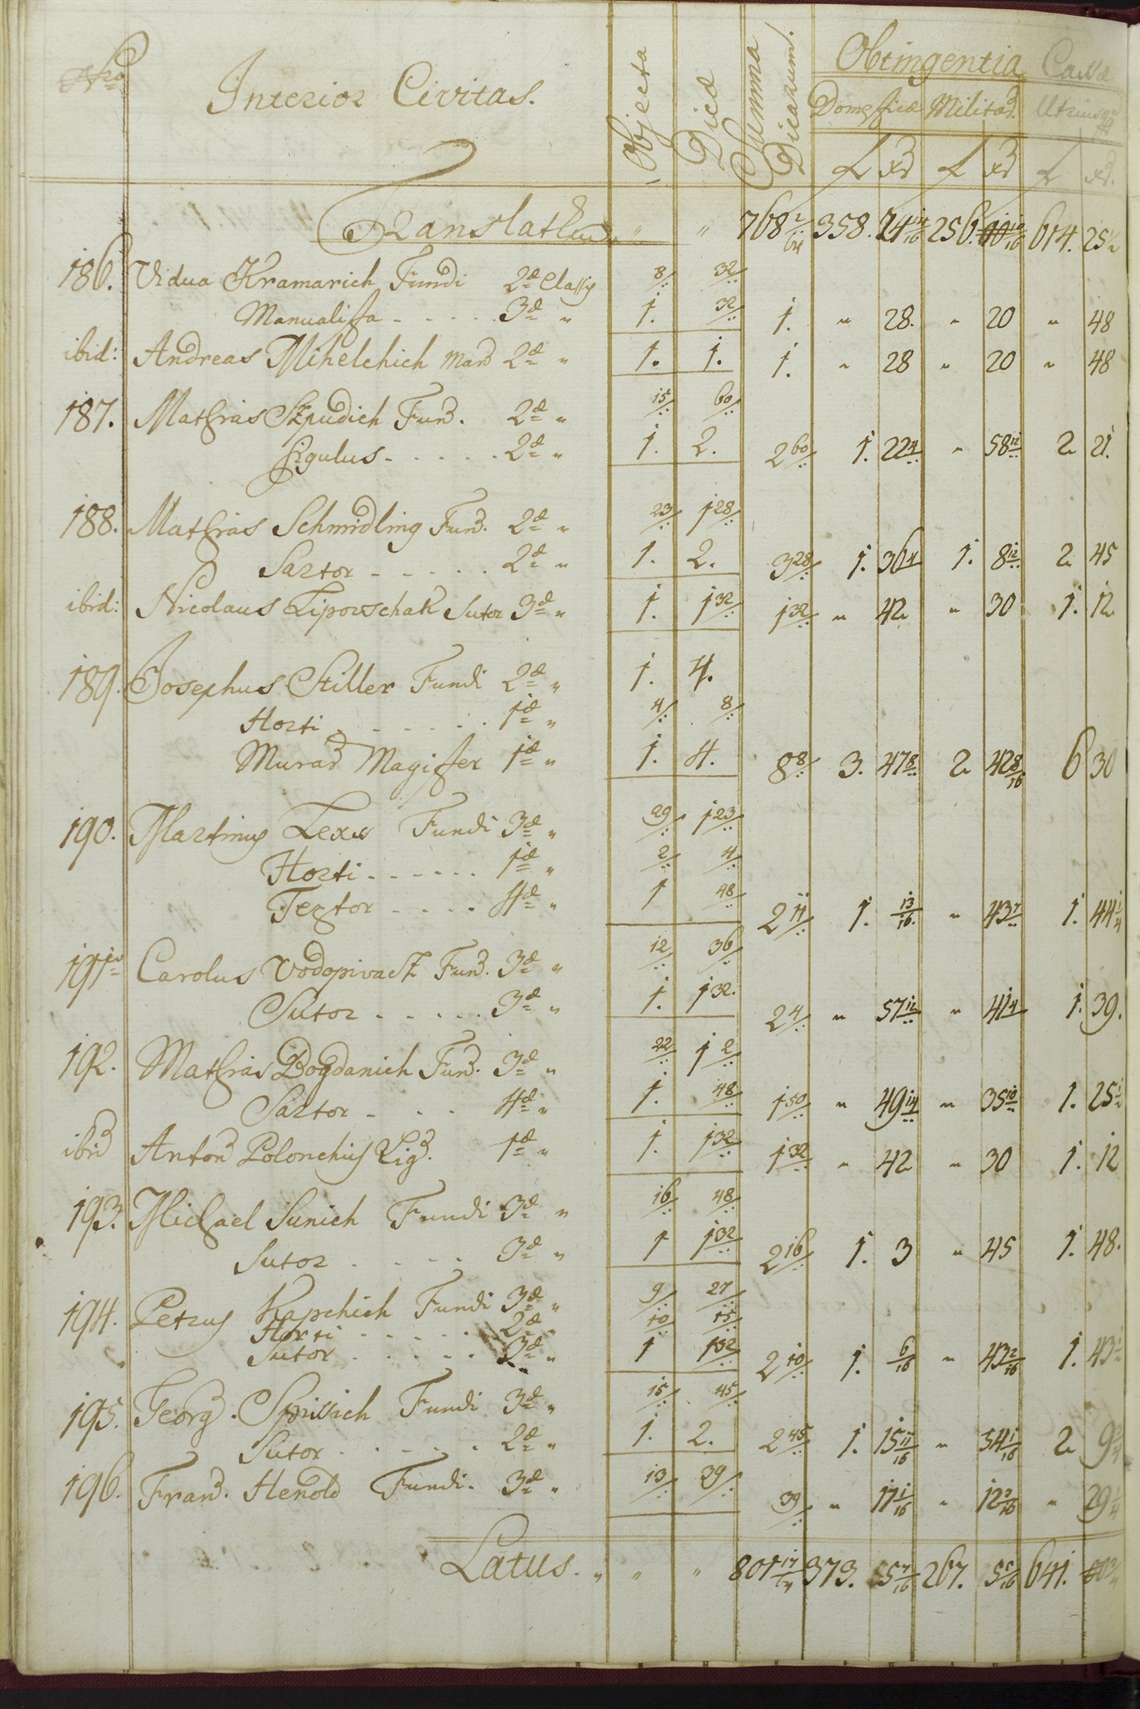 Nro Interior Civitas. Objecta Dicæ Summa Dicarum. Obtingentia Cassæ
Domesticæ Militar. Utriusq
f xr f xr f xr.
Translatum „ „ 768 2/64 358. 24 14/16 256. 10/16 614. 25 1/2
186. Vidua Kramarich Fundi 2dæ Classis 8/.. 32/..
Manualista - - - - - 3æ „ 1. 32/.. 1. „ 28. „ 20 „ 48
ibid: Andreas Mihelchich Mard 2æ „ 1. 1. 1. „ 28 „ 20 „ 48
187. Mathias Skpudich Fund. 2æ „ 15/.. 60/..
Figulus - - - - - 2æ „ 1. 2. 2 60/.. 1. 22 4/.. „ 58 12/.. 2 21.
188. Mathias Schmidling Fund. 2æ „ 23/.. 1 28/..
Sartor - - - - - 2æ „ 1. 2. 3 28/.. 1. 36 4/.. 1. 8 12/.. 2 45
ibid: Nicolaus Lipowschak Sutor 3æ „ 1. 1 32/.. 1 32/.. „ 42 „ 30 1. 12
189. Josephus Stiller Fundi 2æ „ 1. 4.
Horti - - - - - 1æ „ 4/.. 8/..
Murar Magister 1æ „ 1. 4. 8 8/.. 3. 47 8/.. 2 42 8/16 6 30
190. Martinus Lexs Fundi 3æ „ 29/.. 1 23/..
Horti - - - - - - 1æ „ 2/.. 4/..
Textor - - - - 4æ „ 1 48/.. 2 11/.. 1. 13/16. „ 43 7/.. 1. 44 1/4
191. Carolus Vodopivacz Fund. 3æ „ 12/.. 36/..
Sutor - - - - - 3æ „ 1. 1 32. 2 4/.. „ 57 12/.. „ 41 4/.. 1. 39.
192. Mathias Bogdanich Fund. 3æ „ 22/.. 1 2/..
Sartor - - - - 4æ „ 1. 48/.. 1 50/.. „ 49 14/.. „ 35 10/.. 1. 25 1/2
ibid Anton Polonchis Lig. 1æ „ 1. 1 32/.. 1 32/.. „ 42 „ 30 1. 12
193. Michael Sunich Fundi 3æ „ 16/.. 48/..
Sutor - - - - 3æ „ 1 1 32/.. 2 16/.. 1. 3 „ 45 1. 48.
194. Petrus Kapchich Fundi 3æ „ 9/.. 27/..
Horti - - - - - 2æ „ 10/.. 15/..
Sutor - - - - - 3æ „ 1 1 32/.. 2 10/.. 1. 6/16 „ 43 2/16 1. 43 1/2
195. Georg. Spissich Fundi 3æ „ 15/.. 45/..
Sutor - - - - - 2æ „ 1. 2. 2 45/.. 1. 15 11/16 „ 54 1/16 2 9 3/4
196. Fran. Herold Fundi. 3æ „ 13/.. 39/.. 39/.. „ 17 1/16 „ 12 3/16 „ 29 1/4
Latus. „ „ „ 801 17/64 373. 55 7/16 267. 5 5/16 641.